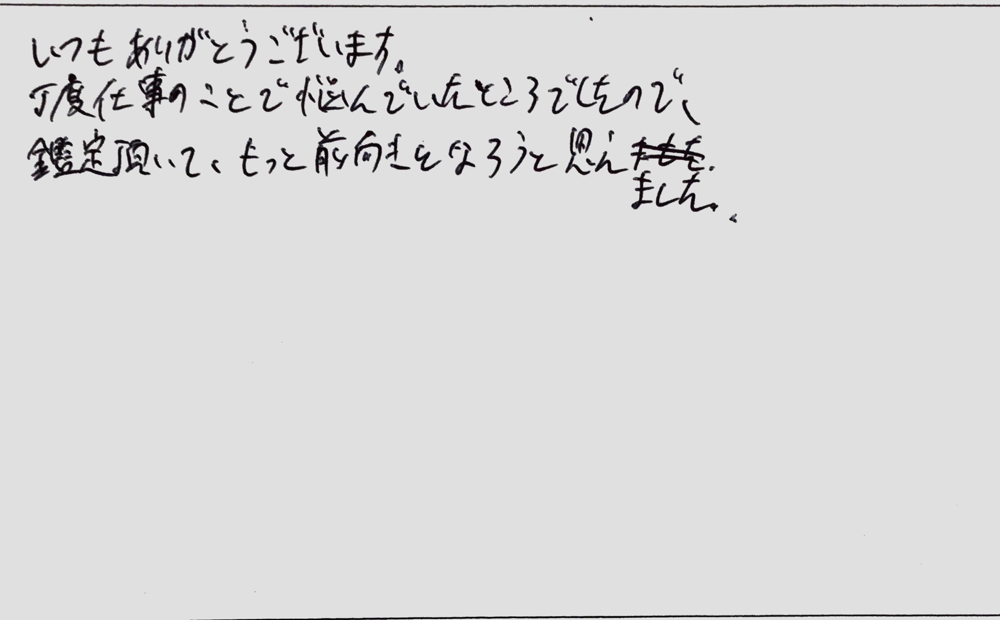 いつもありがとうございます。
丁度仕事のことで悩んでいたところでしたので、
鑑定頂いて、もっと前向きになろうと思え
ました。